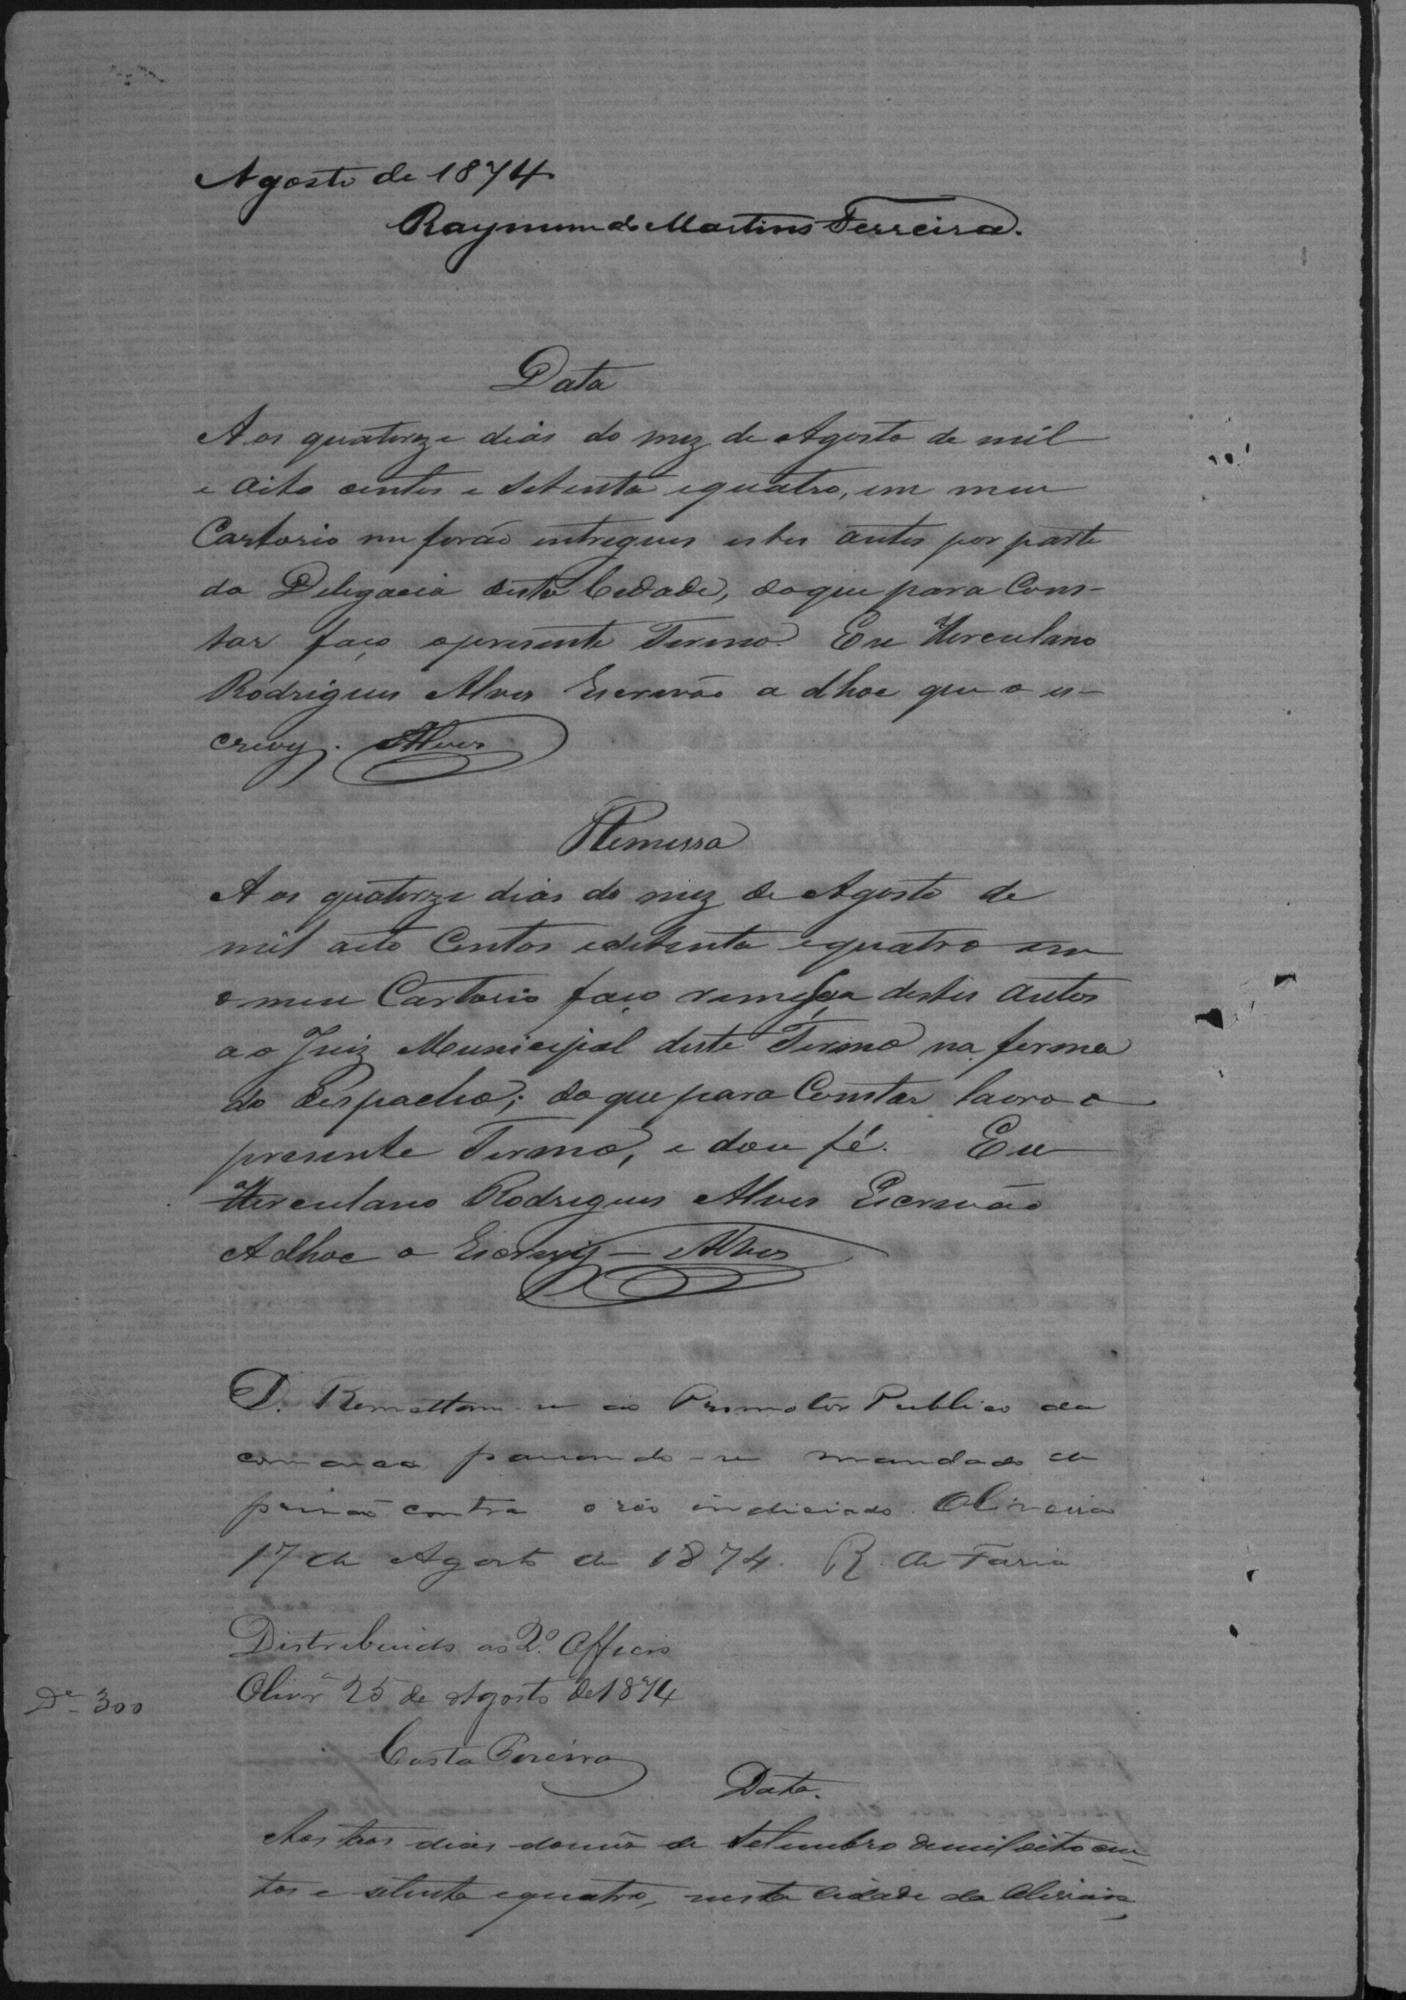 Agosto de 1874.
Raymundo Martins Ferreira.
Data
Aos quatorze dias do mez de Agosto de mil
e oito centos e setenta e quatro, em meu
Cartorio me forão entregues estes autos por parte
da Delegacia desta Cidade, do que para Cons-
tar faço o presente Termo. Eu Herculano
Rodrigues Alves Escrivão adhoc que o es-
crevy. Alves
Remessa
Aos quatorze dias do mez de Agosto de
mil oito Centos e setenta e quatro em
o meu Cartorio faço remessa destes autos
ao Juiz Municipal deste Termo na forma
do despacho; do que para Constar lavro o
presente Termo, e dou fé. Eu
Herculano Rodrigues Alves Escrivão
Adhoc o Escrevy - Alves
D. Remettam-se ao Promotor Publico da
comarca passando-se mandado de
prisão contra o réo indiciado. Oliveira
17 de Agosto de 1874. R. de Faria
Distribuido ao 2º Officio
Olivrª 25 de Agosto de 1874
De 300
Costa Pereira
Data.
Aos tres dias do mez de Setembro de mil oito cen-
tos e setenta e quatro, nesta Cidade da Oliveira,